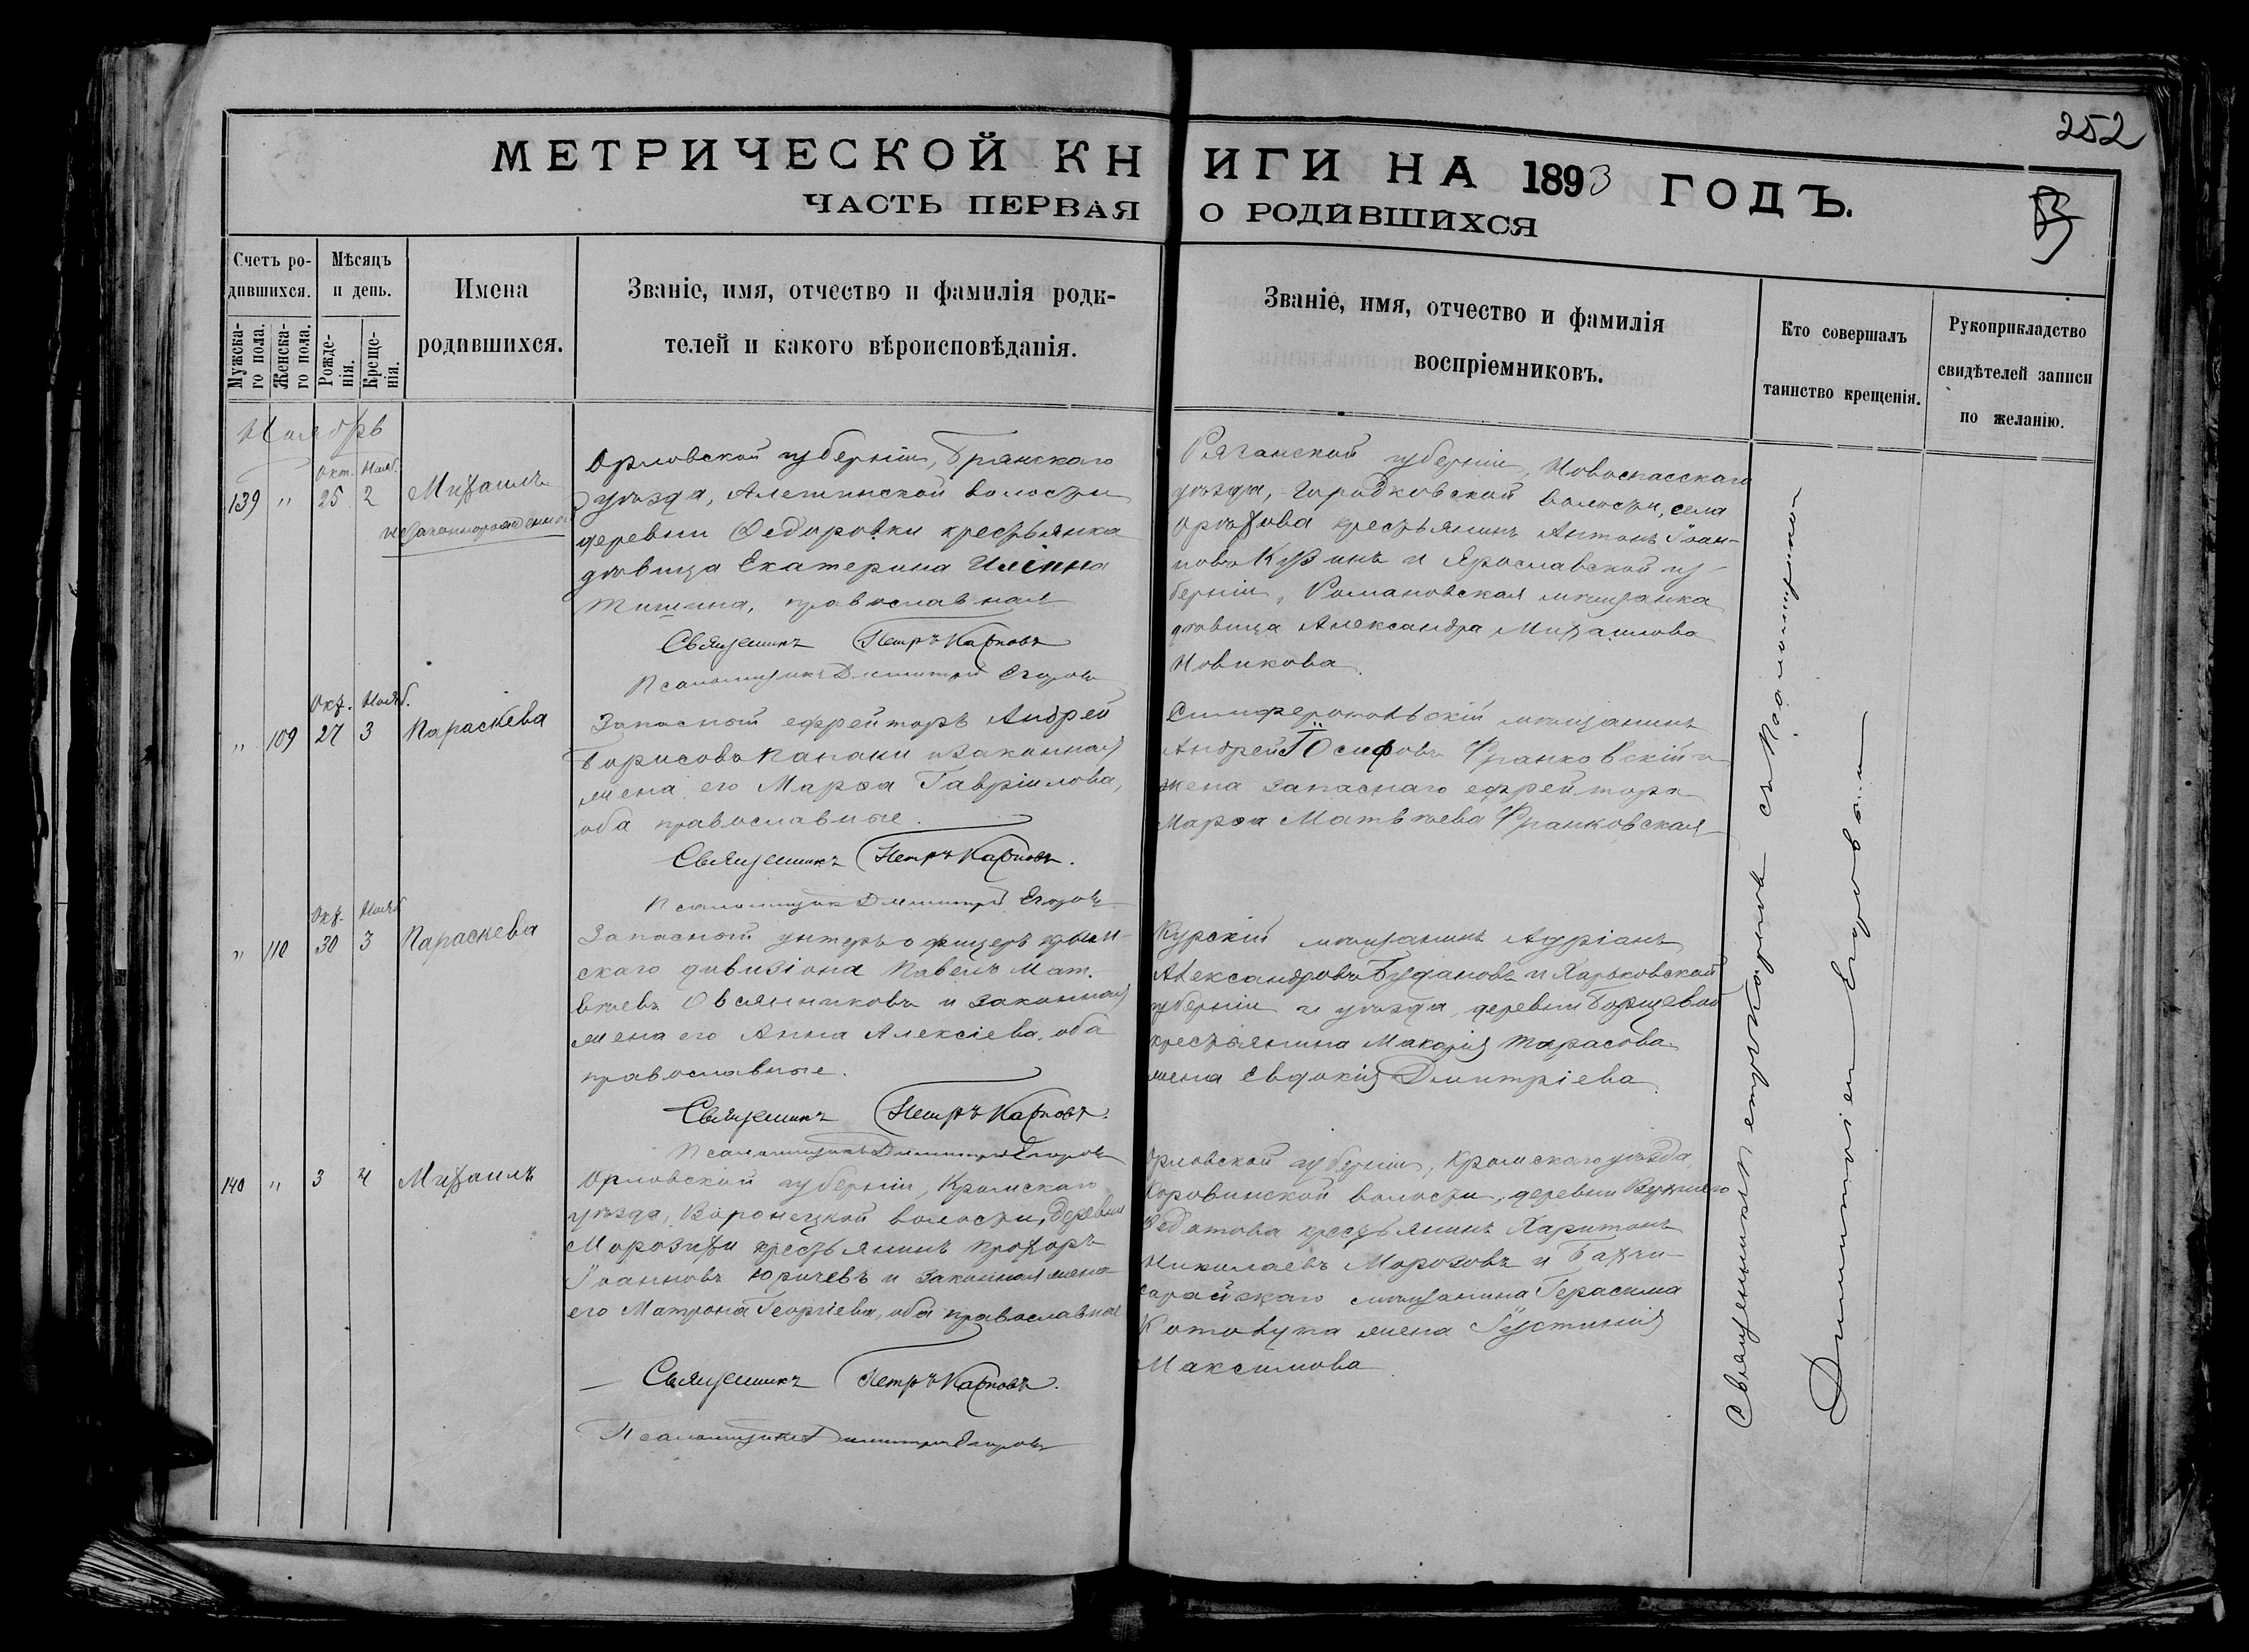 252
МЕТРИЧЕСКОЙ КНИГИ НА 1893 ГОДЪ.
ЧАСТЬ ПЕРВАЯ О РОДИВШИХСЯ
Счетъ родившихся.
Мужскаго пола.
Женскаго пола.
Мѣсяцъ и день.
Рожденія.
Крещенія.
Имена родившихся.
Званіе, имя, отчество и фамилія роди-
телей и какого вѣроисповѣданія.
Званіе, имя, отчество и фамилія
воспріемниковъ.
Кто совершалъ
таинство крещенія.
Рукоприкладство
свидѣтелей записи
по желанію.
Ноябрь
Окт. Нояб.
139 " 25 2 Михаилъ
незаконнорожденный
Орловской губерніи, Брянскаго
уѣзда, Алешинской волости
деревни Ѳедоровки крестьянка
дѣвица Екатерина Иліина
Тишина, православная
Священникъ Петръ Карповъ
Псаломщикъ Димитрій Егоровъ
Рязанской губерніи, Новоспасскаго
уѣзда, Городковской волости, села
Орѣхова крестьянинъ Антонъ Іоан-
новъ Кузинъ и Ярославской гу-
берніи, Романовская мѣщанка
дѣвица Александра Михаилова
Новикова.
Окт. Нояб.
" 109 27 3 Параскева
Запасный ефрейторъ Андрей
Борисовъ Папани и законная
жена его Марѳа Гавріилова,
оба православные.
Священникъ Петръ Карповъ.
Псаломщикъ Димитрій Егоровъ
Симферопольскій мѣщанинъ
Андрей Іосифовъ Франковскій и
жена запаснаго ефрейтора
Марѳа Матвѣева Франковская
Окт. Нояб.
" 110 30 3 Параскева
Запасный унтеръ офицеръ крым-
скаго дивизіона Павелъ Мат-
вѣевъ Овсянниковъ и законная
жена его Анна Алексіева, оба
православные.
Священникъ Петръ Карповъ.
Псаломщикъ Димитрій Егоровъ
Курскій мѣщанинъ Адріанъ
Александровъ Будановъ и Харьковской
губерніи и уѣзда, деревни Борщевой
крестьянина Макарія Тарасова
жена Евдокія Димитріева
140 " 3 4 Михаилъ
Орловской губерніи, Кромскаго
уѣзда, Воронецкой волости, деревни
Морозихи крестьянинъ Прохоръ
Іоанновъ Юричевъ и законная жена
его Матрона Георгіева, оба православные
Священникъ Петръ Карповъ.
Псаломщикъ Димитрій Егоровъ
Орловской губерніи, Кромскаго уѣзда,
Коровинской волости, деревни
Ѳедотова крестьянинъ Харитонъ
Николаевъ Морозовъ и Бахчи-
сарайскаго мѣщанина Герасима
жена Іустинія
Максимова
Священникъ Петръ Карповъ съ Псаломщикомъ
Димитріемъ Егоровымъ